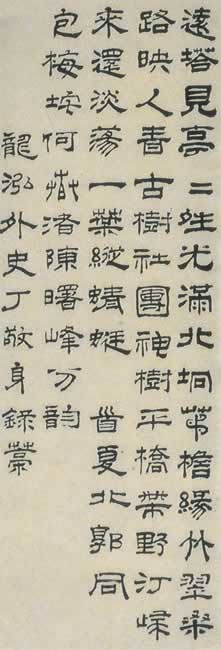 遠塔見亭二夝光滿北坰茅檐緣竹翠桑
路映人青古樹社團神樹平橋帶野汀
來還淡蕩一葉縱蜻蜓 首夏北郭同
包梅垞何菽渚陳曙峰分韵
龍泓外史丁敬身錄藁